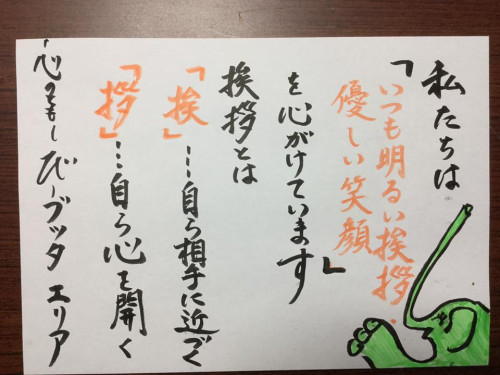 私たちは
「いつも明るい挨拶・
優しい笑顔
を心がけています」
挨拶とは
「挨」…自ら相手に近づく
「拶」…自ら心を開く
心のともしび ブッタ エリア